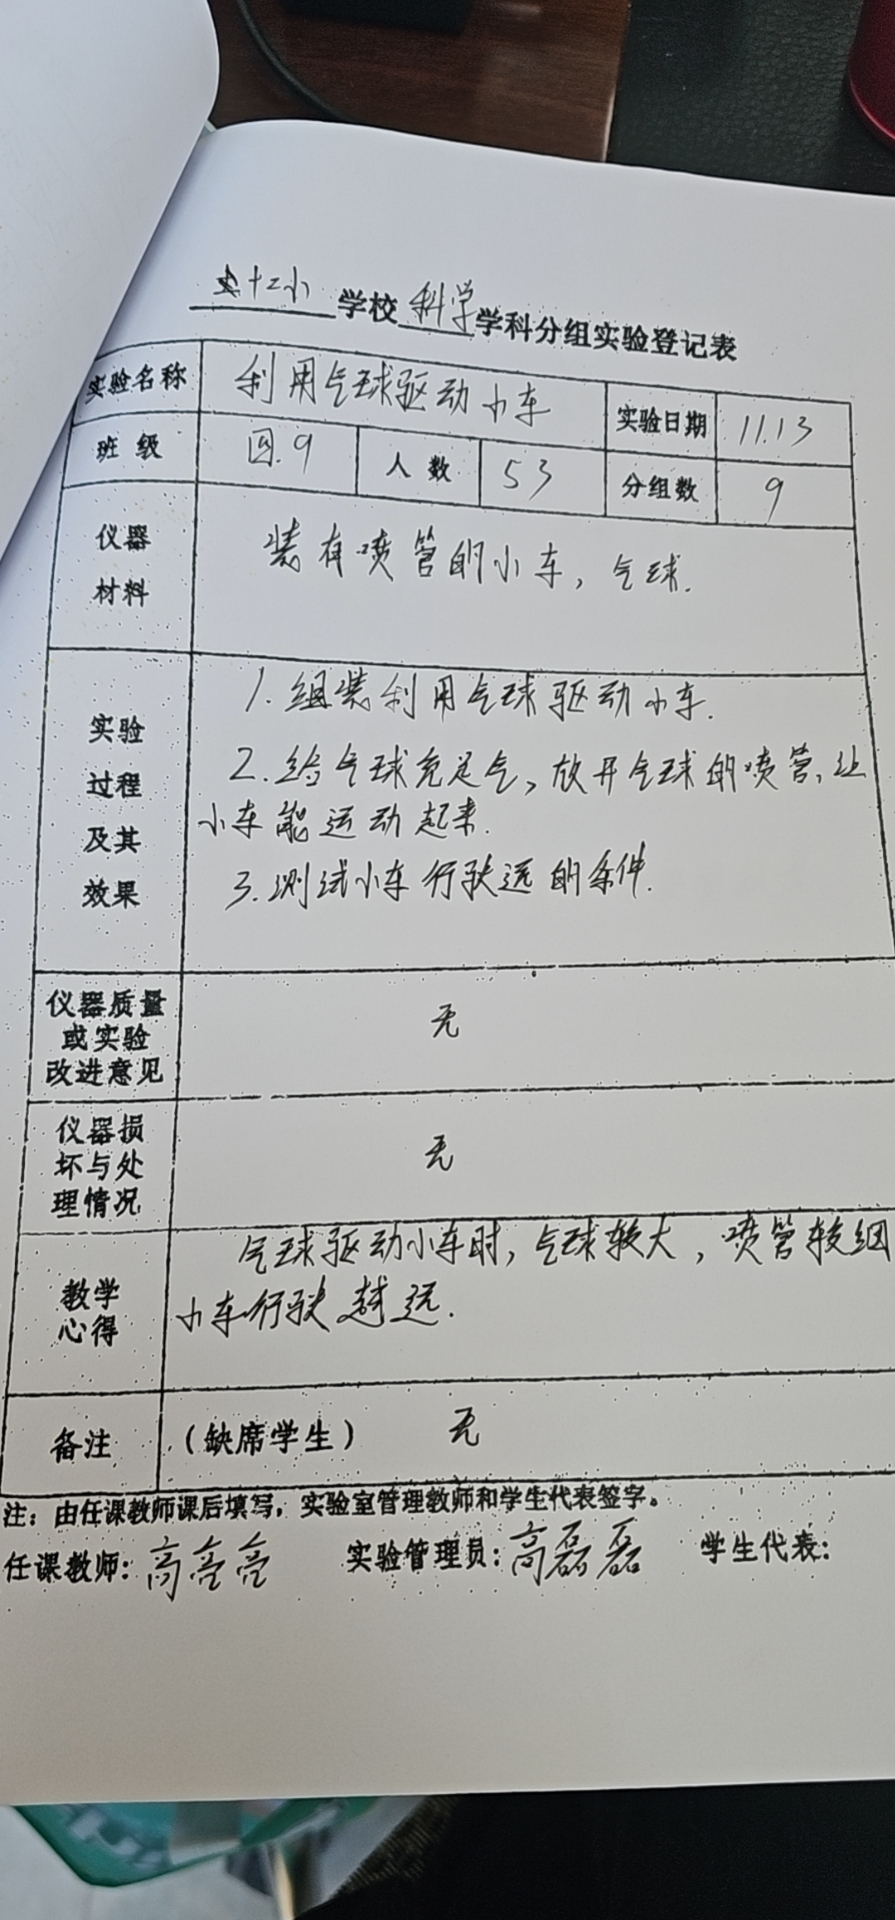 十二小学校科学学科分组实验登记表
实验名称 利用气球驱动小车 实验日期 11.13
班级 四.9 人数 53 分组数 9
仪器
材料
装有喷管的小车，气球.
实验
过程
及其
效果
1.组装利用气球驱动小车.
2.给气球充足气，放开气球的喷管，让
小车能运动起来.
3.测试小车行驶远的条件.
仪器质量
或实验
改进意见
无
仪器损
坏与处
理情况
无
教学
心得
气球驱动小车时，气球较大，喷管较细
小车行驶越远.
备注 （缺席学生） 无
注：由任课教师课后填写，实验室管理教师和学生代表签字。
任课教师：高亮亮 实验管理员：高磊磊 学生代表：